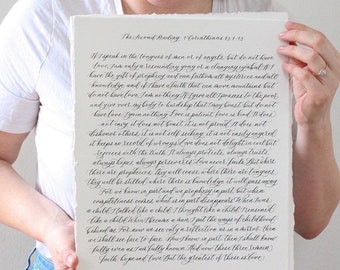 The Second Reading 1 Corinthians 13:1-13
If I speak in the tongues of men or of angels, but do not have
love, I am only a resounding gong or a clanging cymbal. If I
have the gift of prophecy and can fathom all mysteries and all
knowledge, and if I have a faith that can move mountains but
do not have love, I am nothing. If I give all I possess to the poor,
and give over my body to hardship that I may boast, but do not
have love, I gain nothing. Love is patient, love is kind. It does
not envy, it does not boast, it is not proud. It does not
dishonor others, it is not self seeking, it is not easily angered,
it keeps no record of wrongs. Love does not delight in evil but
rejoices with the truth. It always protects, always trusts,
always hopes, always perseveres. Love never fails. But where
there are prophecies, they will cease; where there are tongues,
they will be stilled; where there is knowledge, it will pass away.
For we know in part and we prophesy in part, but when
completeness comes, what is in part disappears. When I was
a child, I talked like a child, I thought like a child, I reasoned
like a child. When I became a man, I put the ways of childhood
behind me. For now we see only a reflection as in a mirror; then
we shall see face to face. Now I know in part; then I shall know
fully, even as I am fully known. And now these three remain:
faith, hope and love. But the greatest of these is love.